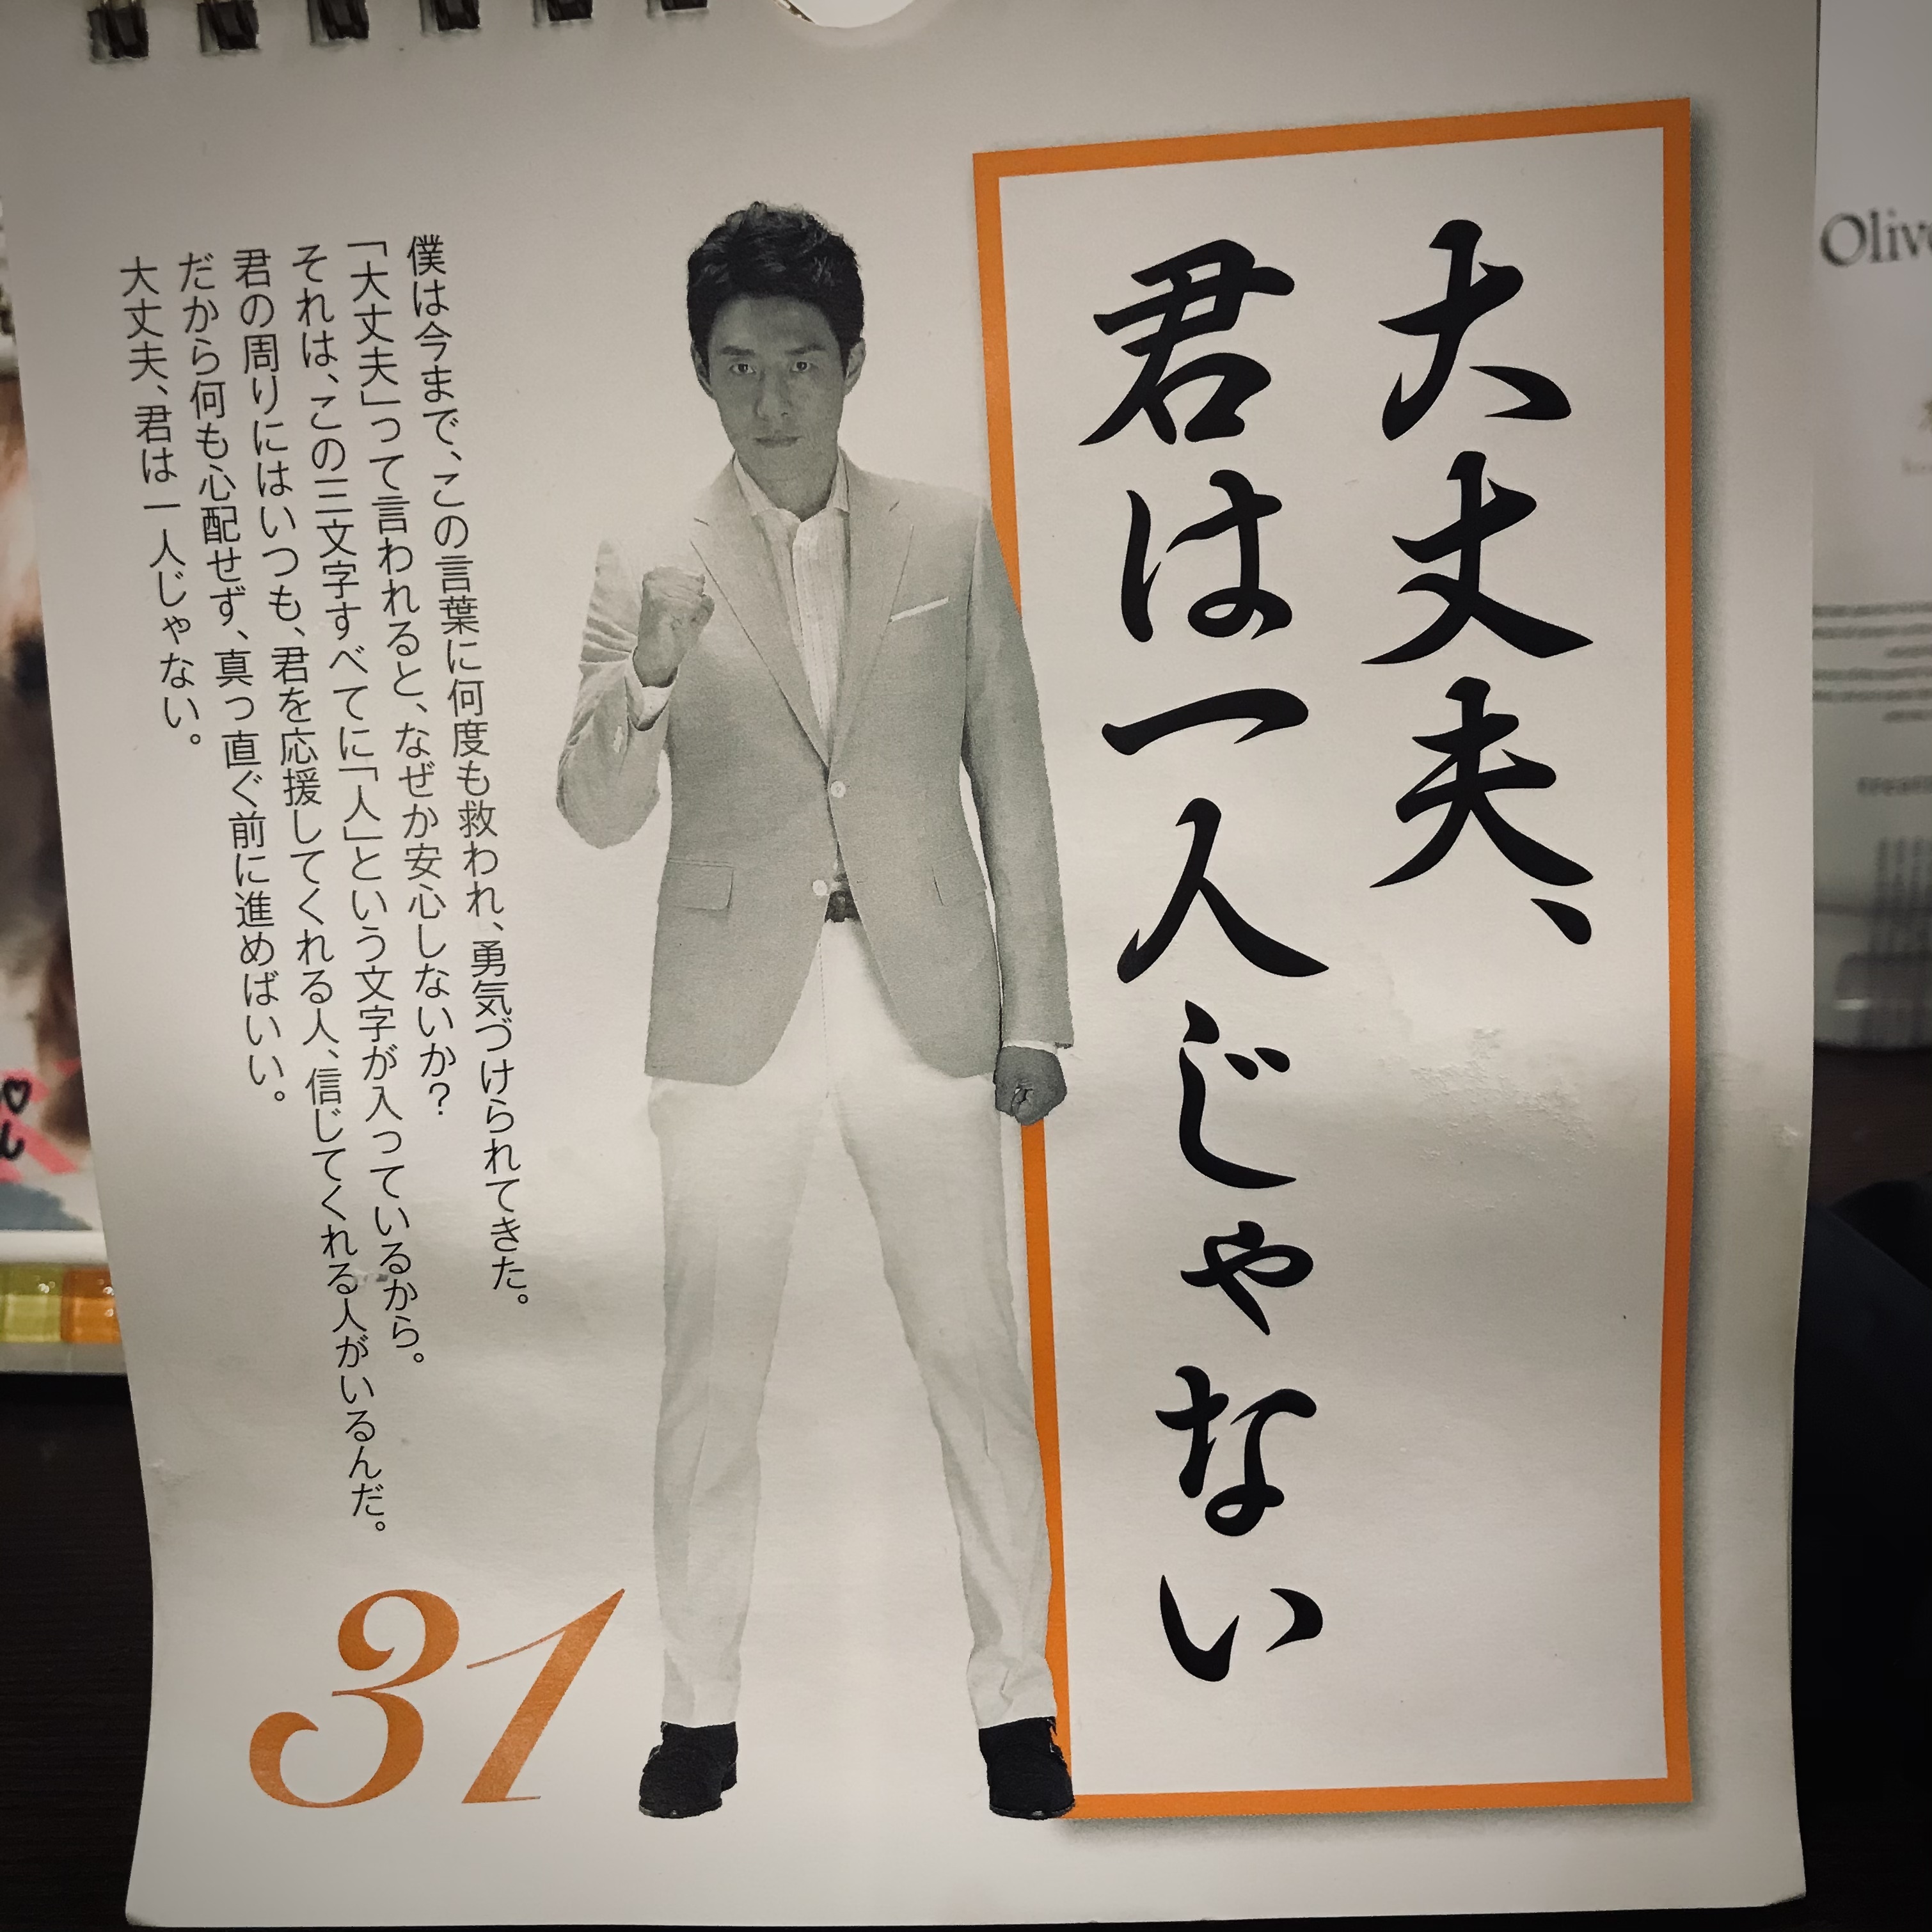 大丈夫、
君は一人じゃない
僕は今まで、この言葉に何度も救われ、勇気づけられてきた。
「大丈夫」って言われると、なぜか安心しないか？
それは、この三文字すべてに「人」という文字が入っているから。
君の周りにはいつも、君を応援してくれる人、信じてくれる人がいるんだ。
だから何も心配せず、真っ直ぐ前に進めばいい。
大丈夫、君は一人じゃない。
31